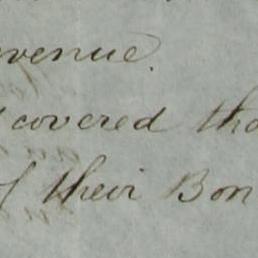 evenue.
covered tha
of their Bon